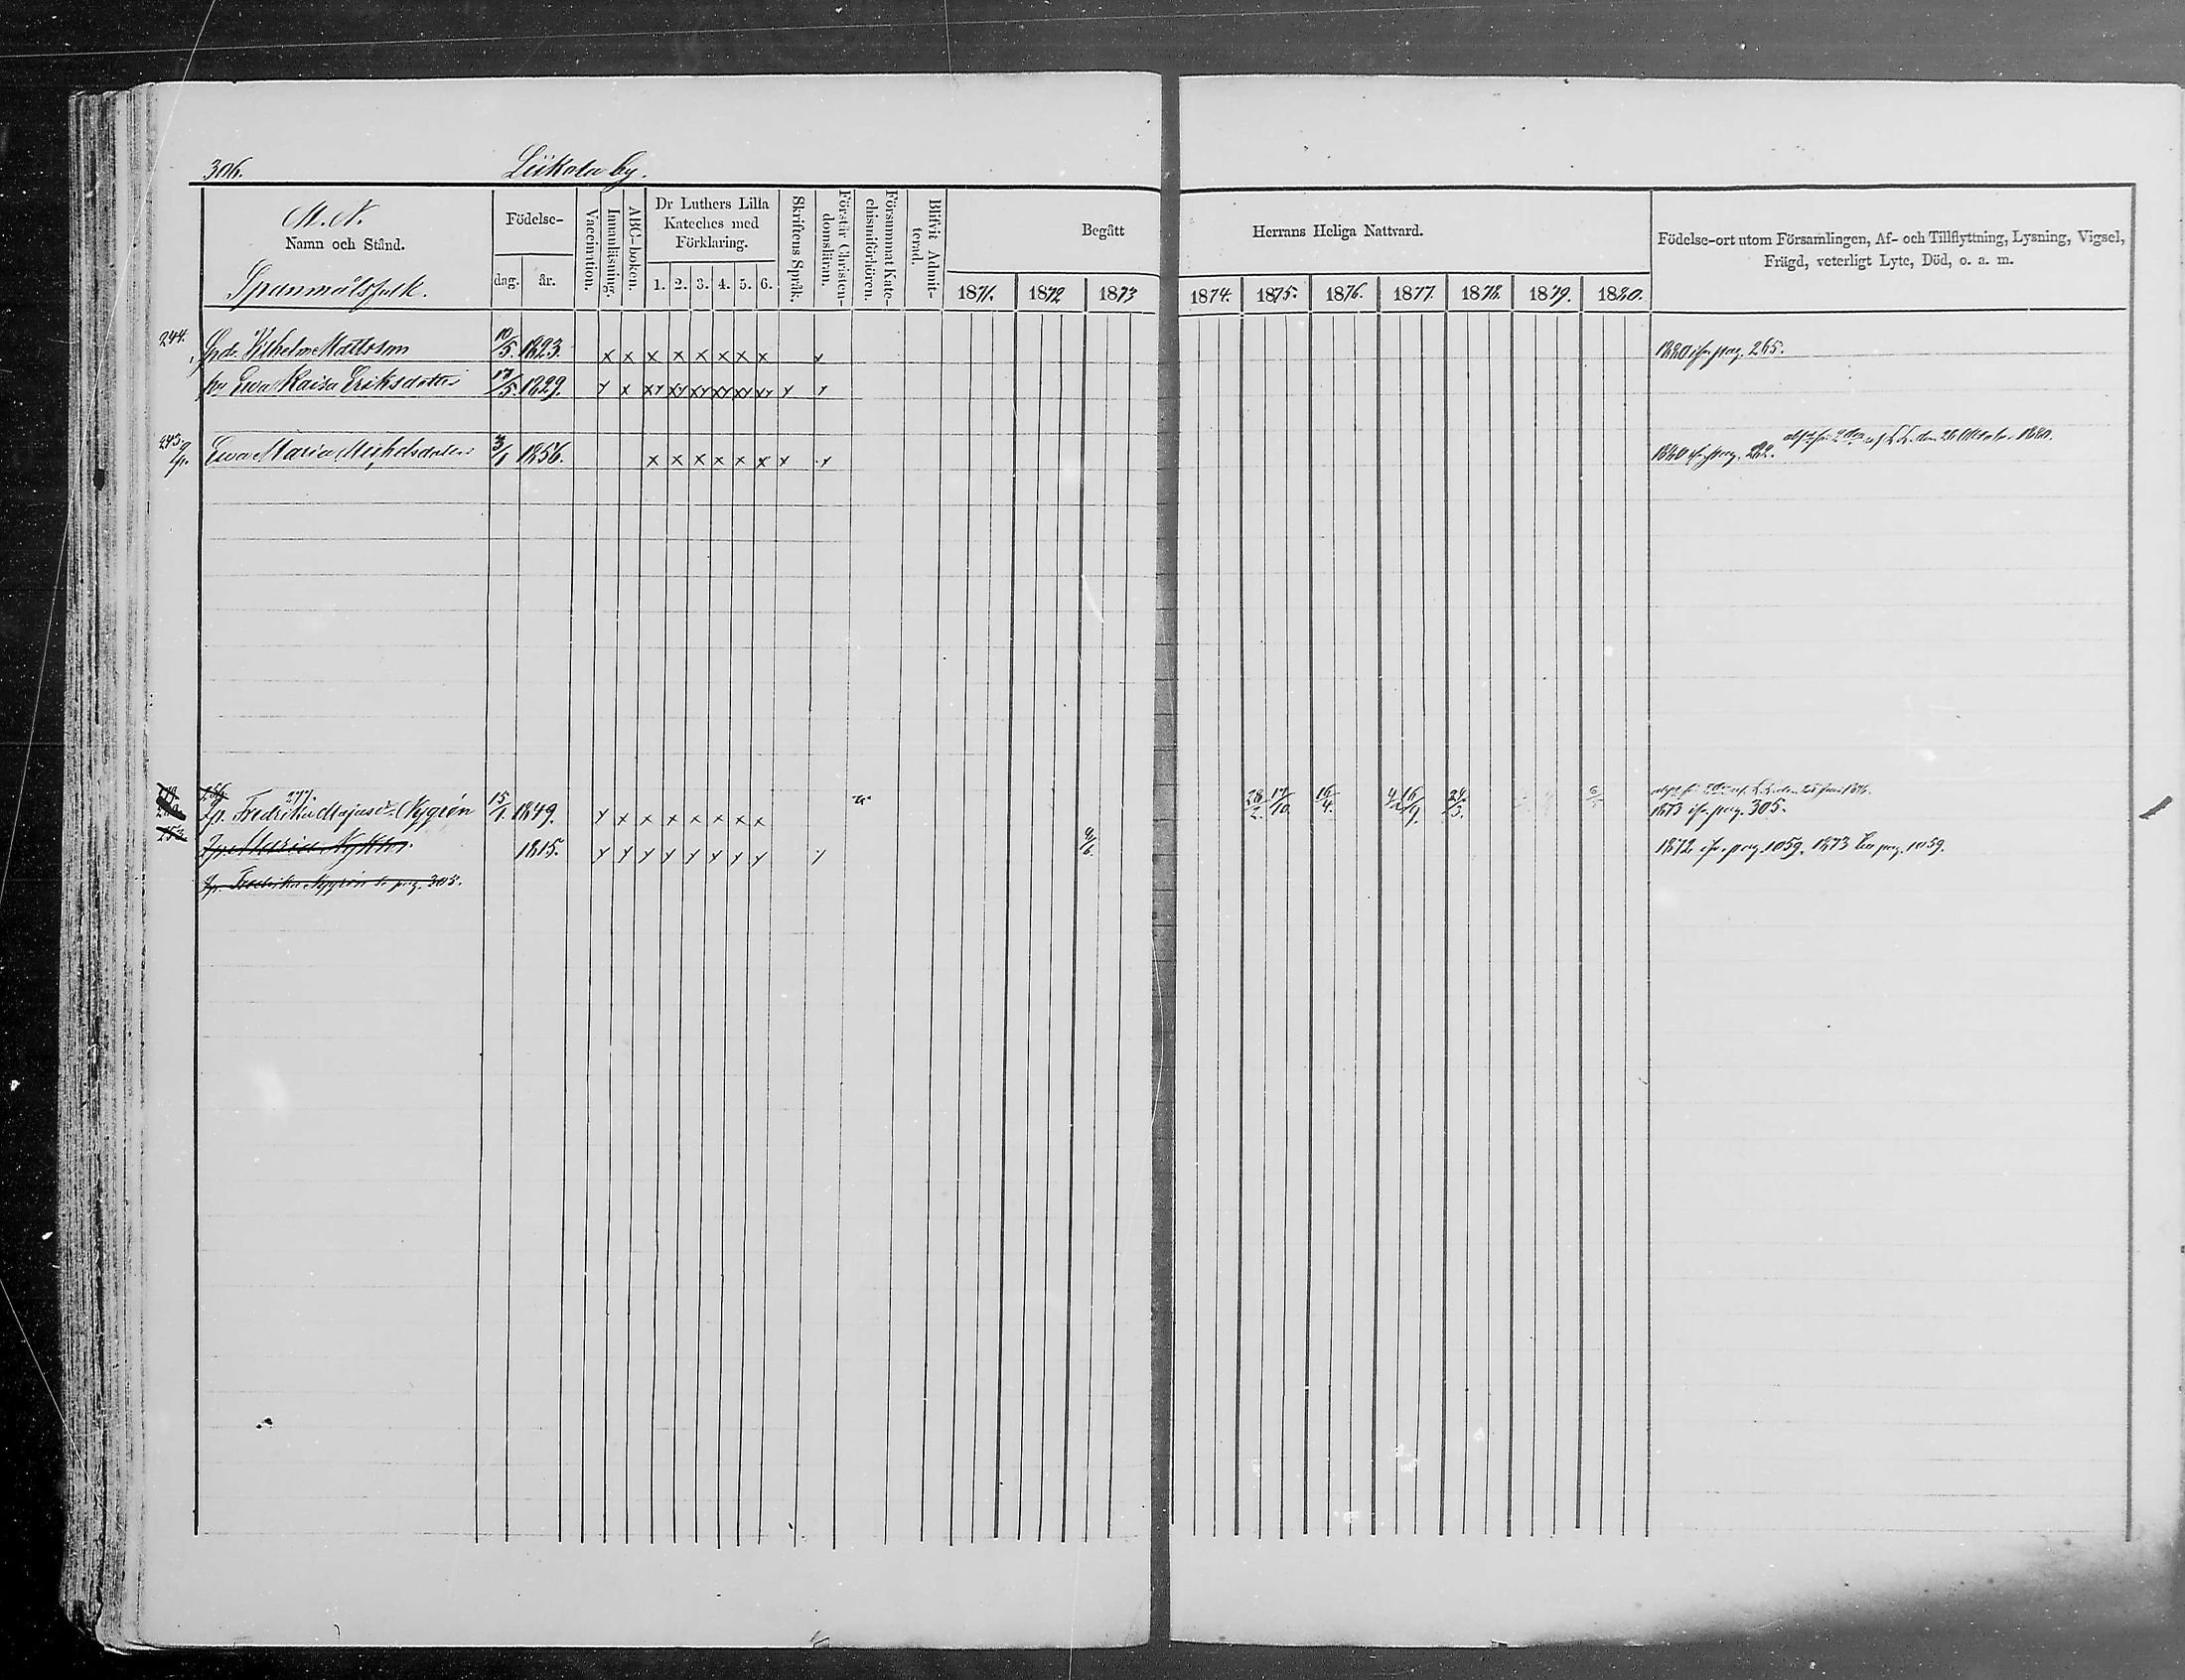 306. Liikola by.
M. N.
Namn och Stånd.
Spanmålsfolk.
Födelse-
dag. år.
Vaccination.
Innanläsning.
ABC-boken.
Dr Luthers Lilla
Kateches med
Förklaring.
1. 2. 3. 4. 5. 6.
Skriftens Språk.
Förstår Christen-
domsläran.
Försummat Kate-
chismiförhören.
Blifvit Admit-
terad.
Begått Herrans Heliga Nattvard.
1871. 1872 1873 1874. 1875. 1876. 1877. 1878. 1879. 1880.
Födelse-ort utom Församlingen, Af- och Tillflyttning, Lysning, Vigsel,
Frägd, veterligt Lyte, Död, o. a. m.
244. Wilhelm Mattsson 10/5. 1823. x x x x x x x x 1880 ifr. pag. 265.
hu Ewa Kaisa Eriksdotter 17/5. 1829. y x xy xy xy xy xy xy y y
245. Ewa Maria Michelsdotter 3/1 1856. x x x x x x x y 1880 ifr. pag. 282. den 26 Oktober 1880.
277.
Ip. Fredrika Majasd. Nygrén 15/1. 1849. y x x x x x x x 28/2. 17/10. 16/4. 16/9. 24/3. 1873 ifr. pag. 305.
Ip. Maria 1815. y y y y y y y y y 9/6. 1872 ifr. pag. 1059. 1873 pag. 1059.
Ip. Fredrika Nygrén pag. 303.